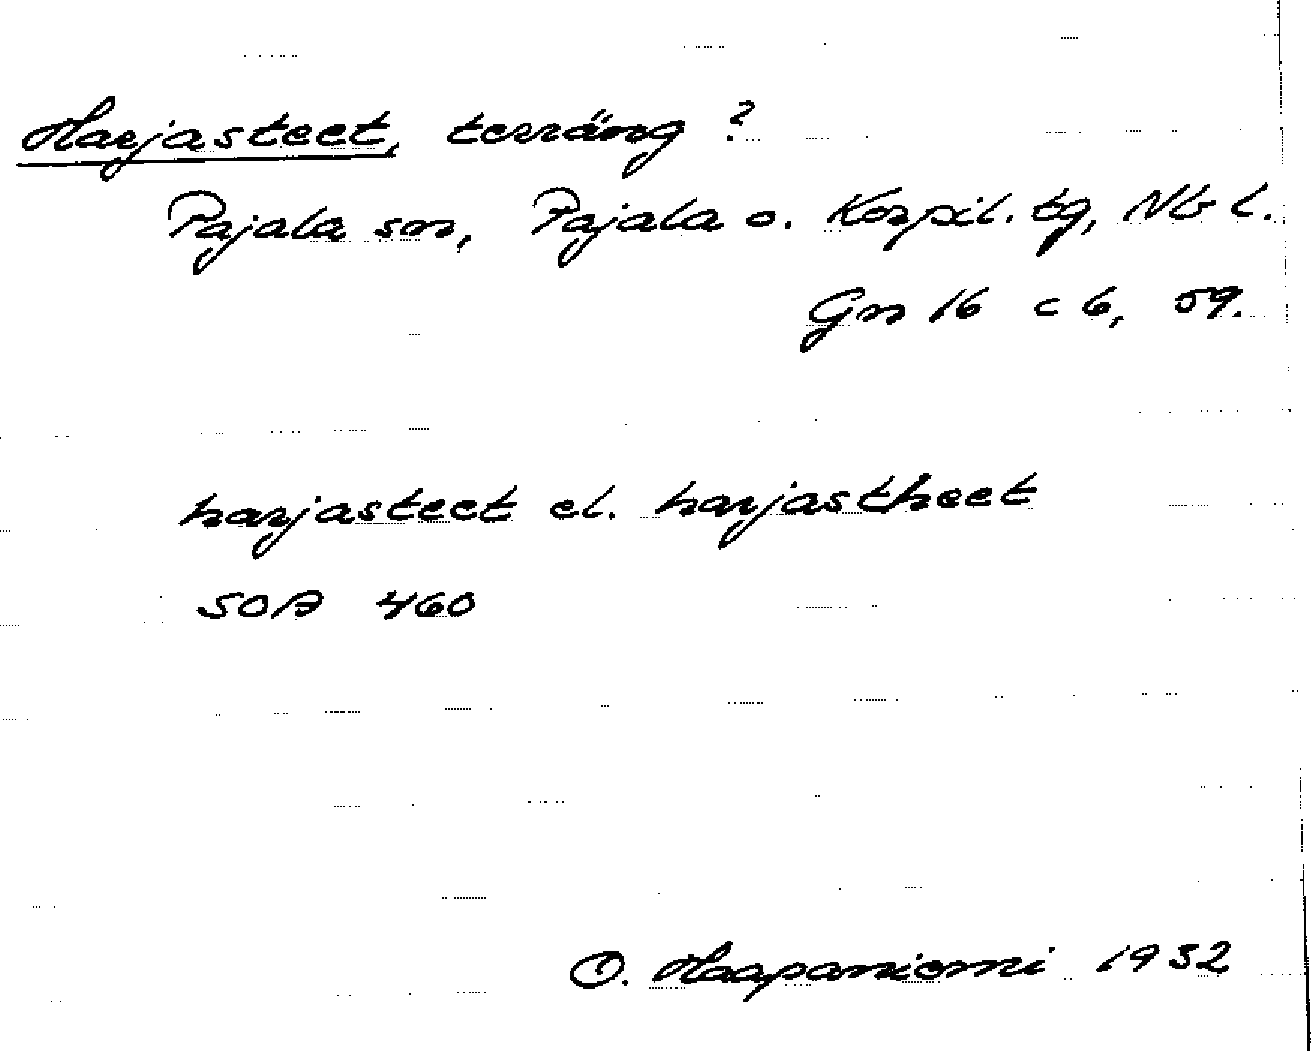 Harjasteet, terräng ?
Pajala sn, Pajala o. Korpil. tg, Nb l.
Gn 16 c 6, 59.
harjasteet el. harjastheet
SOA 460
O. Haapaniemi 1932